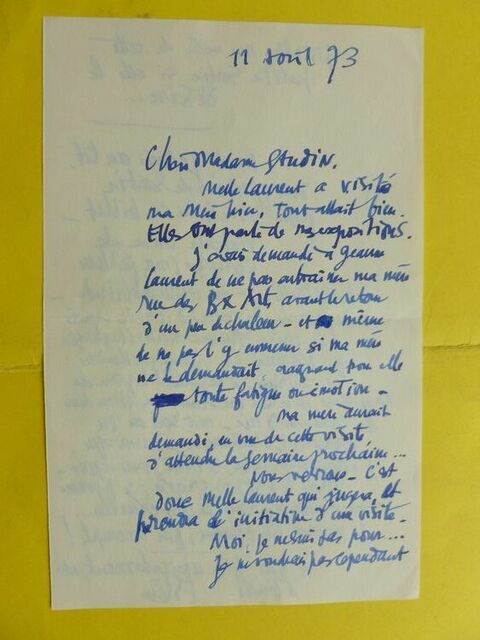 11 Avril 73
Chère Madame Gaudin,
Melle Laurent a visité
ma mère hier, Tout allait bien.
Elles ont parlé de nos expositions.
J'avais demandé à Jeanne
Laurent de ne pas entraîner ma mère
rue des Bx Arts, avant le retour
d'un peu de chaleur - et même
de ne pas l'y emmener si ma mère
ne le demandait, craignant pour elle
toute fatigue ou émotion -
ma mère aurait
demandé, en vue de cette visite,
d'attendre la semaine prochaine...
Nous verrons - C'est
donc Melle Laurent qui jugera, et
prendra l'initiative d'une visite -
Moi, je ne suis pas pour...
Je ne voudrais pas cependant